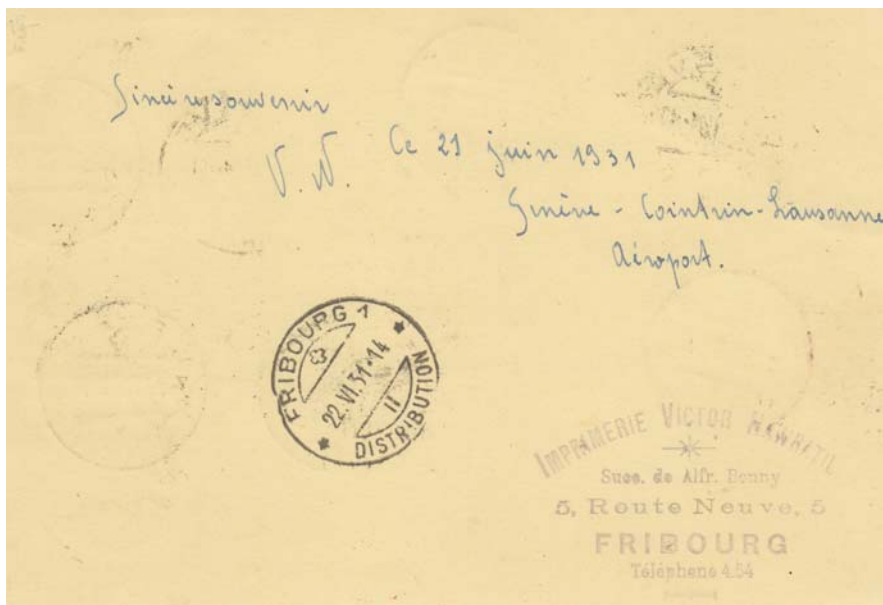 Sincère souvenir
V. N. Ce 21 juin 1931
Genève - Cointrin - Lausanne
Aéroport.
FRIBOURG 1
22.VI.31-14
II
DISTRIBUTION
IMPRIMERIE VICTOR NAWRATIL
Succ. de Alfr. Benny
5, Route Neuve, 5
FRIBOURG
Téléphone 4.54